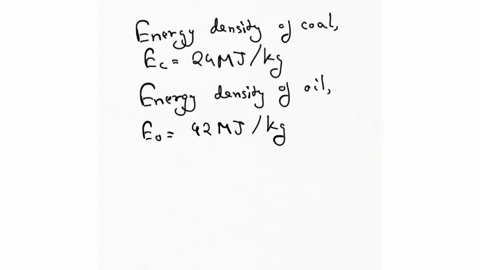 Energy density of coal,
Ec = 24MJ/kg
Energy density of oil,
Eo = 42MJ/kg